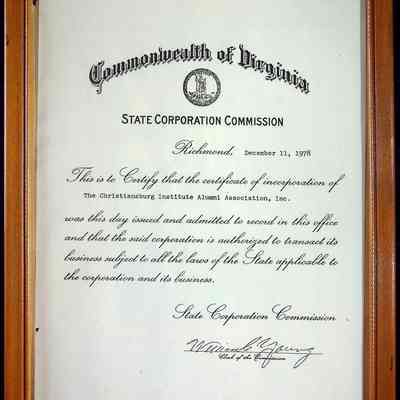 Commonwealth of Virginia
STATE CORPORATION COMMISSION
Richmond, December 11, 1978
This is to Certify that the certificate of incorporation of
The Christiansburg Institute Alumni Association, Inc.
was this day issued and admitted to record in this office
and that the said corporation is authorized to transact its
business subject to all the laws of the State applicable to
the corporation and its business.
State Corporation Commission
William C. Young
Clerk of the Commission